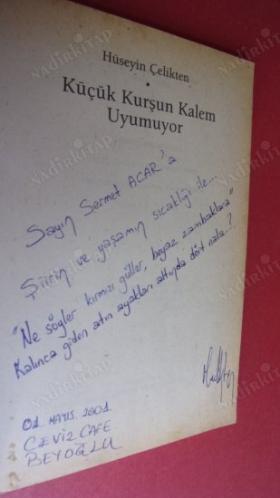 Hüseyin Çelikten
Küçük Kurşun Kalem
Uyumuyor
Sayın Sermet ACAR'a
Şiirin ve yaşamın sıcaklığı ile...
"Ne söyler kırmızı güller, beyaz zambaklara"
Kalınca giden atın ayakları altında dört nala..?
01 MAYIS 2001
CEVİZ CAFE
BEYOĞLU
NADİRKİTAP